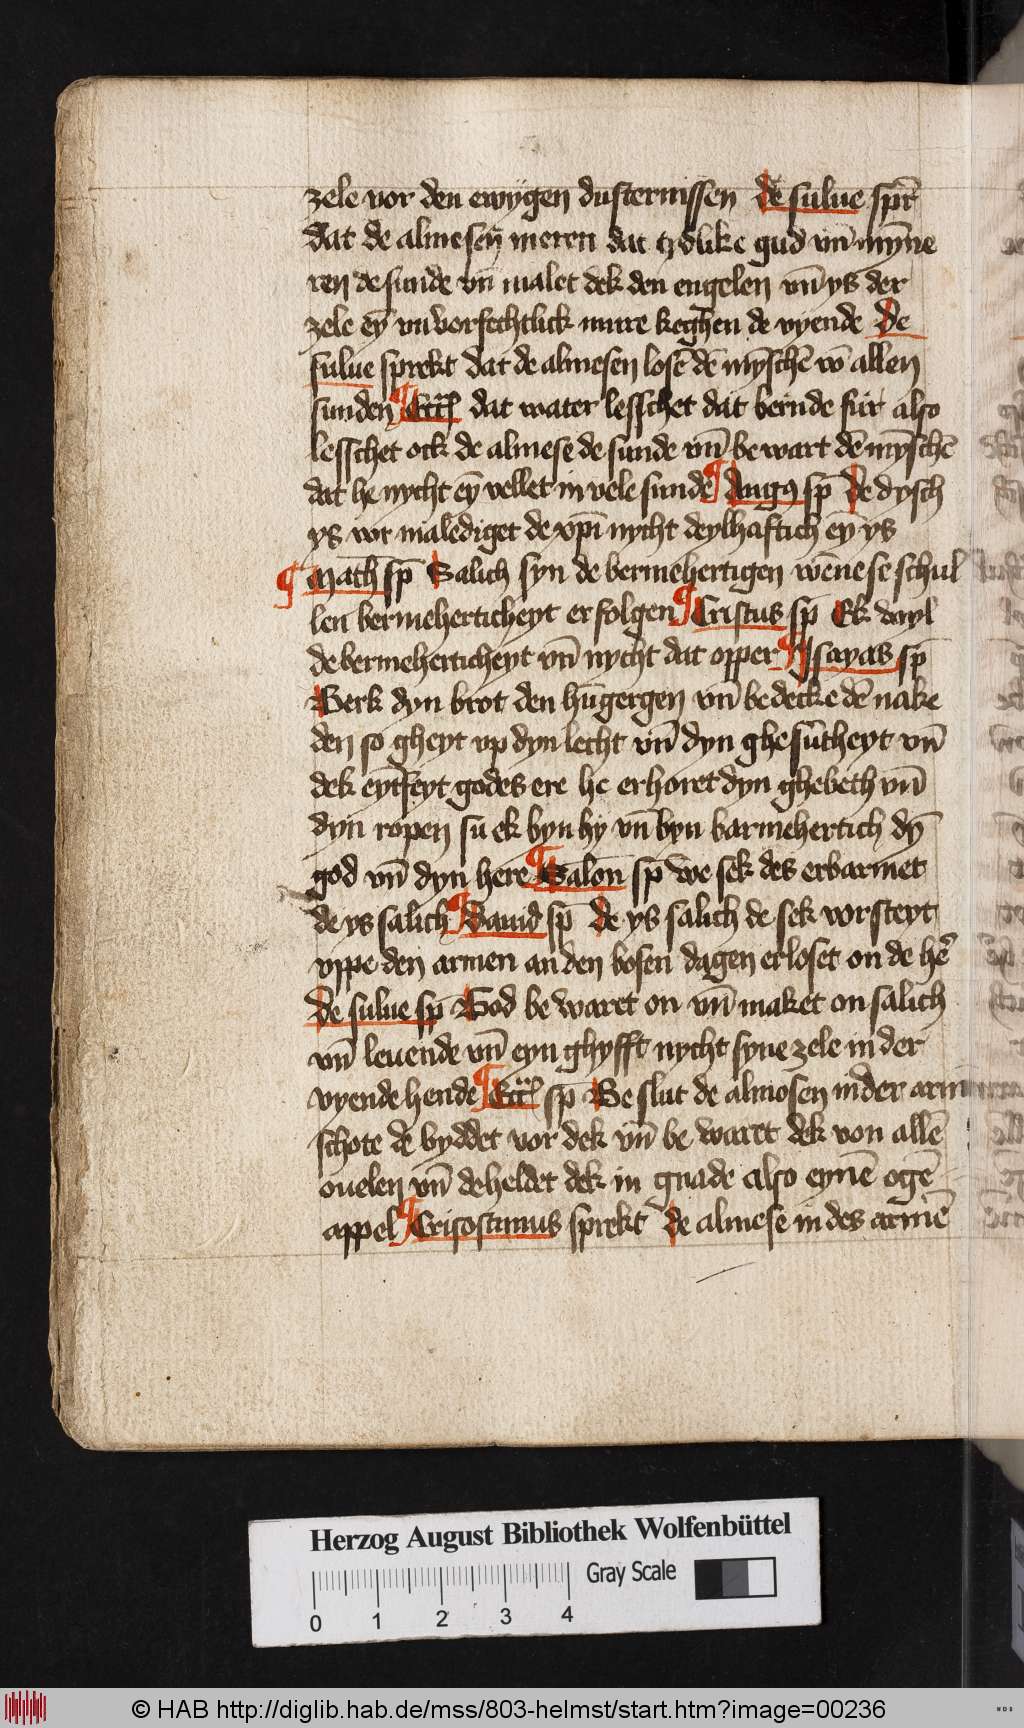 zele vor den ewygen dusternissen de sulue spr̄
dat de almesen meren dat tzidlike gud vn̄ myñe
ren de sunde vn̄ malet dek den engelen vn̄ ys der
zele ey̅ vnvorfechtlick mure keghen de vyende De
sulue sprekt dat de almesen losē dē my̅schē vō allen
sunden ¶ dat water lesschet dat bernde fůr also
lesschet ock de almese de sunde vn̄ bewart dē my̅schē
dat he nycht ey̅ vellet in vele sunde ¶ Augꝯ sp̄ De dysch
ys vor maledyget de xp̄i nycht deylhaftich ey̅ ys
¶ Math̅ sp̄ Salich syn de bermehertigen wēne se schul
len bermeherticheyt erfolgen ¶ Cristus sp̄ Ek wyl
de bermeherticheyt vn̄ nycht dat opper ¶ Ysayas sp̄
Berk dyn brot den hūgergen vn̄ bedecke dē nake
den so gheyt vp dyn lecht vn̄ dyn ghesūtheyt vn̄
dek eytfeyt godes ere he erhoret dyn ghebeth vn̄
dyn ropen su ek byn hy vn̄ byn barmehertich dy̅
god vn̄ dyn here ¶ Salon̄ sp̄ we sek des erbarmet
de ys salich ¶ Dauid sp̄ de ys salich de sek vorsteyt
vppe den armen an den bosen dagen erloset on de hē
de sulue sp̄ God bewaret on vn̄ maket on salich
vn̄ leuende vn̄ eyn ghyfft nycht syne zele in der
vyende hende ¶ sp̄ Beslut de almosen in der armen
schote de byddet vor dek vn̄ bewaret dek von allē
ouelen vn̄ beheldet dek in gnade also eynē ogē
appel ¶ Crisostimus sprekt de almese in des armē
Herzog August Bibliothek Wolfenbüttel
Gray Scale
0 1 2 3 4
© HAB http://diglib.hab.de/mss/803-helmst/start.htm?image=00236